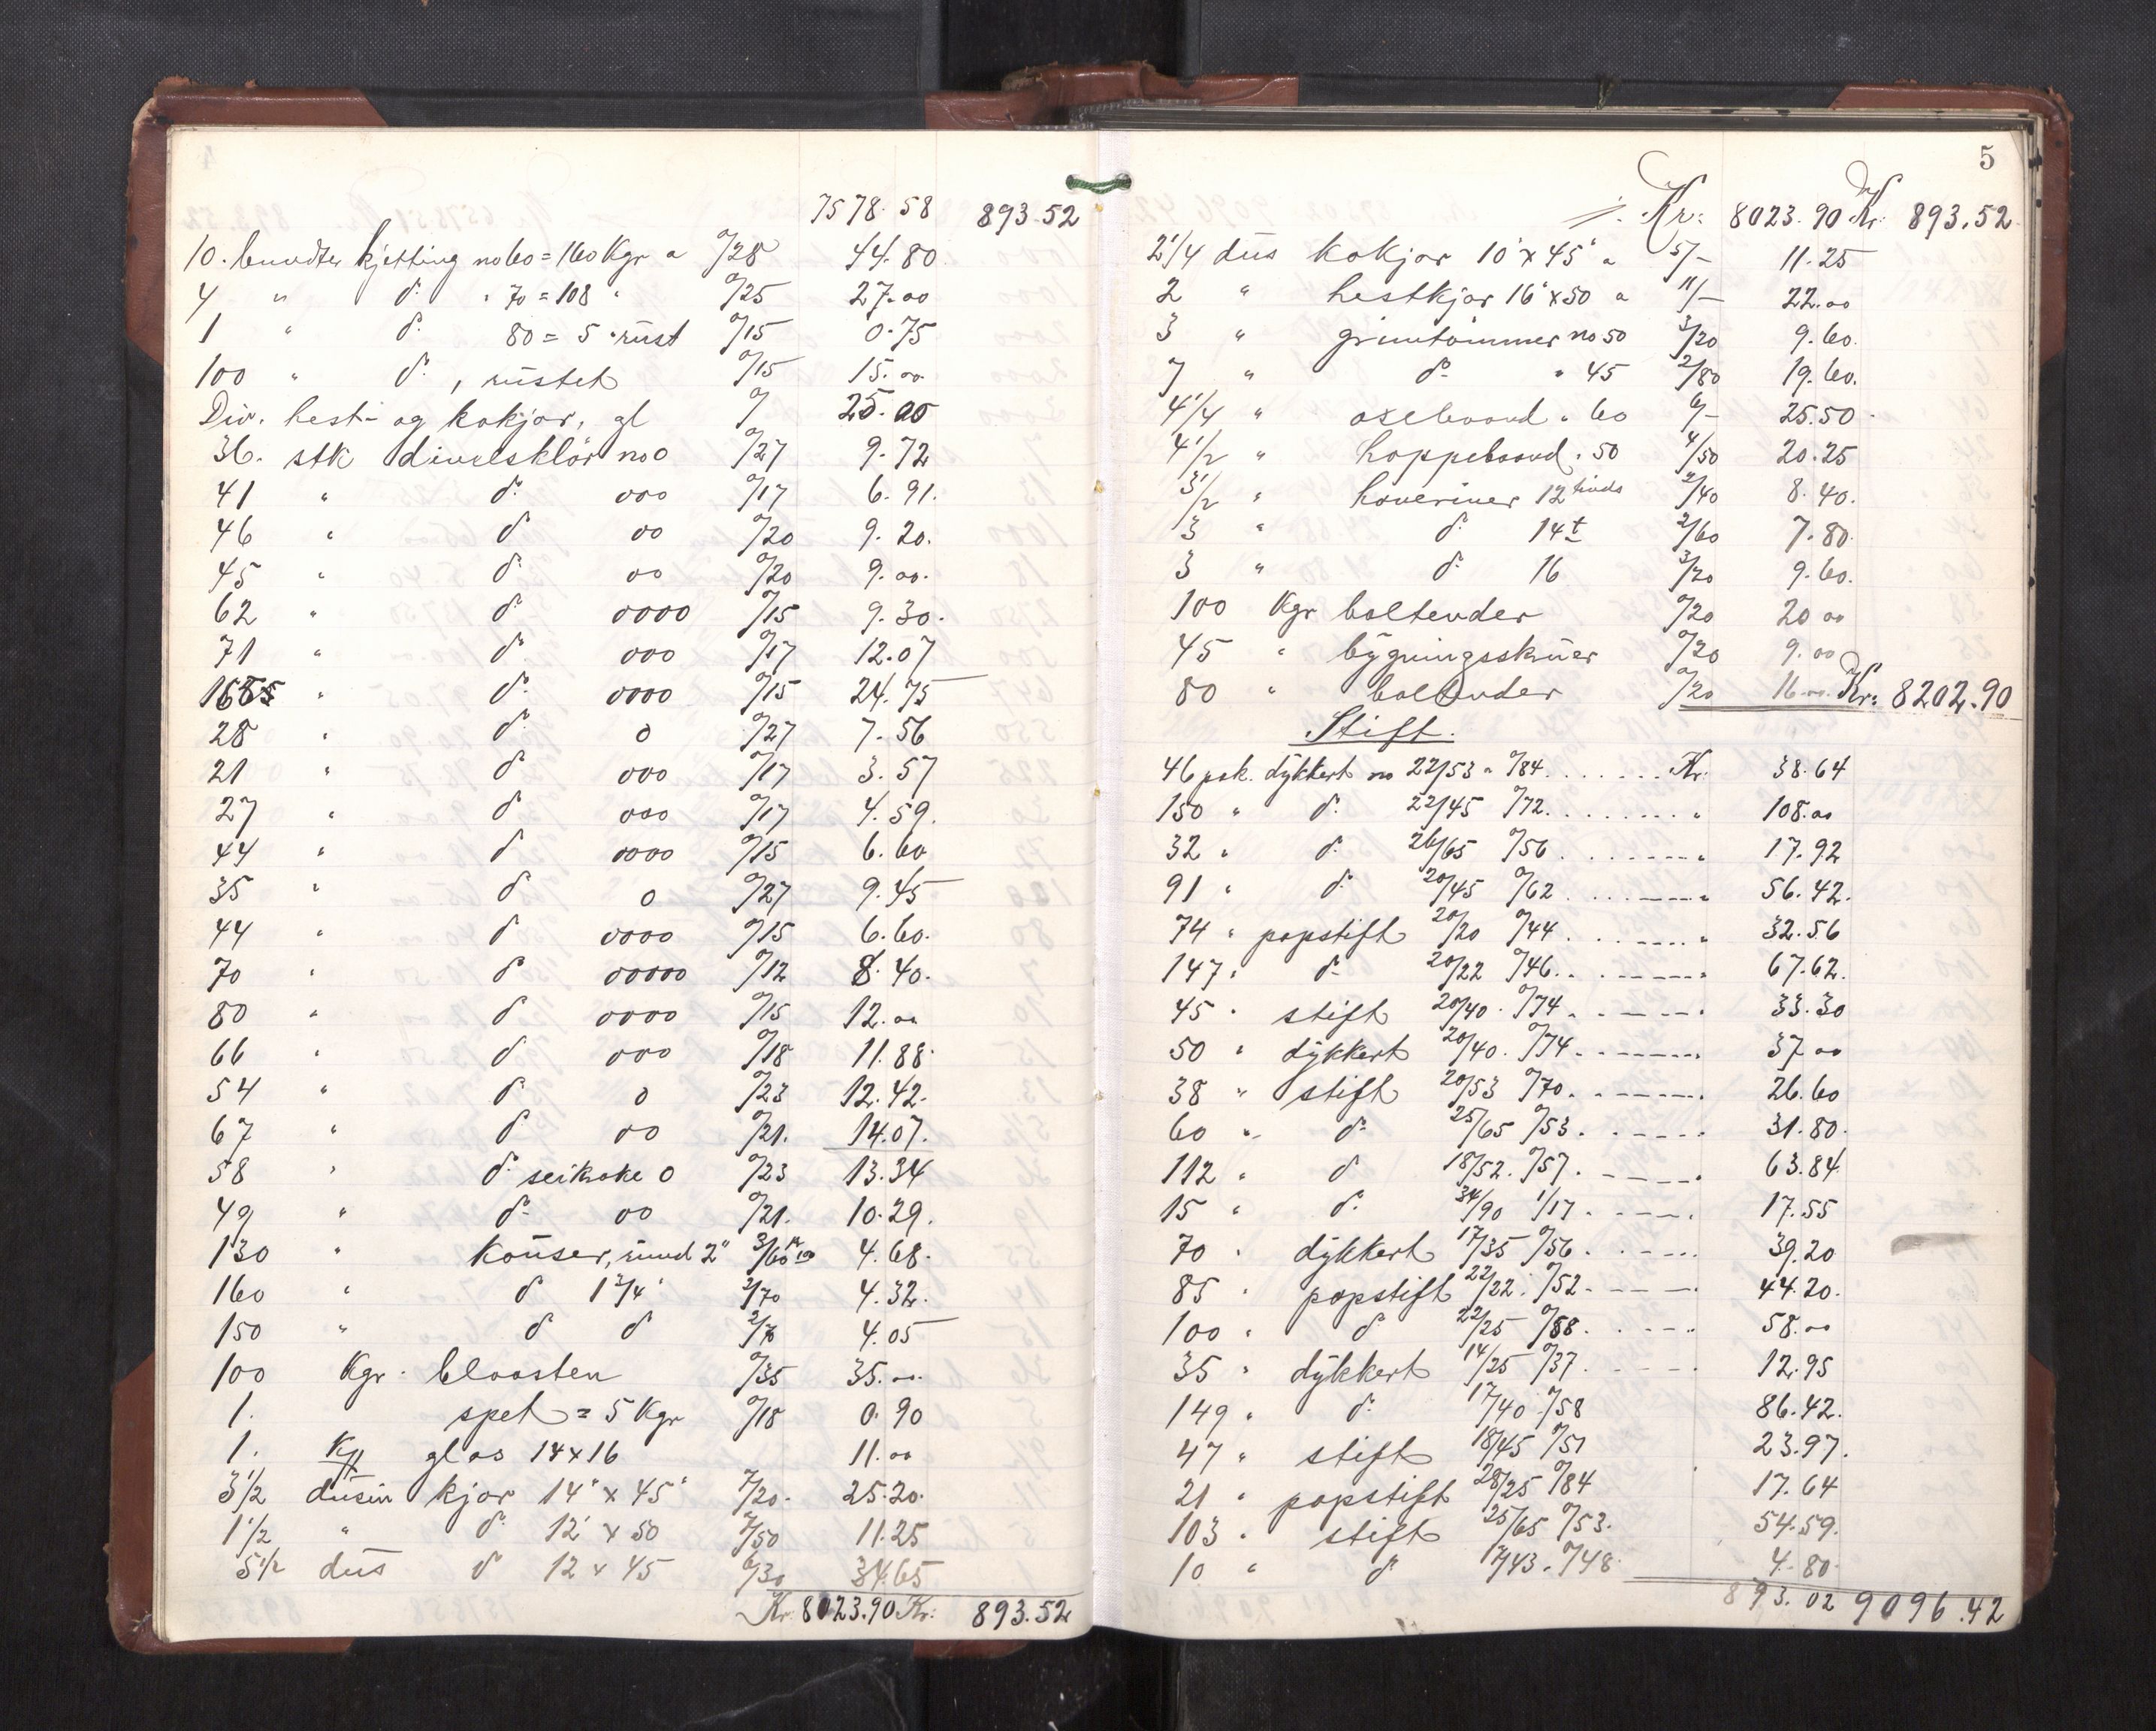 7578.58 893.52
10. bundter kjetting no 60 = 160 Kgr a 0/28 44.80
4 " do " 70 = 108 " 0/25 27.00
1 " do 80 = 5 " rust 0/15 0.75
100 " do , rustet 0/15 15.00
Div. hest- og kokjør, gl 0/ 25.00
36. stk divelsklör no 0 0/27 9.72
41 " do 000 0/17 6.91.
46 " do 00 0/20 9.20.
45 " do 00 0/20 9.00.
62 " do 0000 0/15 9.30.
71 " do 000 0/17 12.07
165 " do 0000 0/15 24.75
28 " do 0 0/27 7.56
21 " do 000 0/17 3.57
27 " do 000 0/17 4.59.
44 " do 0000 0/15 6.60
35 " do 0 0/27 9.45
44 " do 0000 0/15 6.60.
70 " do 00000 0/12 8.40.
80 " do 0000 0/15 12.00
66 " do 000 0/18 11.88.
54 " do 0 0/23 12.42.
67 " do 00 0/21. 14.07.
58 " do seikroke 0 0/23 13.34
49 " do 00 0/21. 10.29.
130 " kouser, rund 2" 3/60 4.68.
160 " do 1 3/4" 2/70 4.32.
150 " do do 2/70 4.05
100 Kgr. blaasten 0/35 35.00.
1. spet = 5 Kgr 0/18 0.90
1. K glas 14 x 16 11.00
3 1/2 dusin kjør 14" x 45" 7/20. 25.20.
1 1/2 " do 12" x 50 7/50 11.25
5 1/2 dus do 12 x 45 6/30 34.65
Kr. 8023.90 Kr: 893.52
5
Kr: 8023.90 Kr: 893.52
2 1/4 dus kokjør 10" x 45" a 5/- 11.25
2 " hestkjør 16" x 50 a 11/- 22.00
3 " grimtömmer no 50 3/20 9.60.
7 " do " 45 2/80 19.60.
4 1/4 " oxebaand " 60 6/- 25.50.
4 1/2 " hoppebaand " 50 4/50 20.25
3 1/2 " hoveriver 12 tinds 2/40 8.40.
3 " do 14 t 2/60 7.80.
3 " do 16 3/20 9.60.
100 Kgr boltender 0/20 20.00
45 " bygningsskruer 0/20 9.00
80 " boltender 0/20 16.00. Kr: 8202.90
Stift.
46 psk. dykkert no 22/53 a 0/84. Kr: 38.64
150 " do 22/45 0/72. " 108.00
32 " do 26/65 0/56. " 17.92
91 " do 20/45 0/62. " 56.42.
74 " papstift 20/20 0/44. " 32.56
147 " do 20/22 0/46. " 67.62.
45 " stift 20/40. 0/74. " 33.30
50 " dykkert 20/40. 0/74. " 37.00
38 " stift 20/53 0/70. " 26.60
60 " do 25/65 0/53. " 31.80.
112 " do 18/52. 0/57. " 63.84
15 " do 34/90 1/17. " 17.55
70 " dykkert 17/35 0/56. " 39.20
85 " papstift 22/22. 0/52. " 44.20.
100 " do 22/25 0/58. " 58.00
35 " dykkert 14/25 0/37. " 12.95
149 " do 17/40 0/58 86.42.
47 " stift 18/45 0/51 23.97.
21 " papstift 28/25 0/84 17.64
103 " stift 25/65 0/53. 54.59.
10 " do 17/43. 0/48. 4.80.
893.02 9096.42